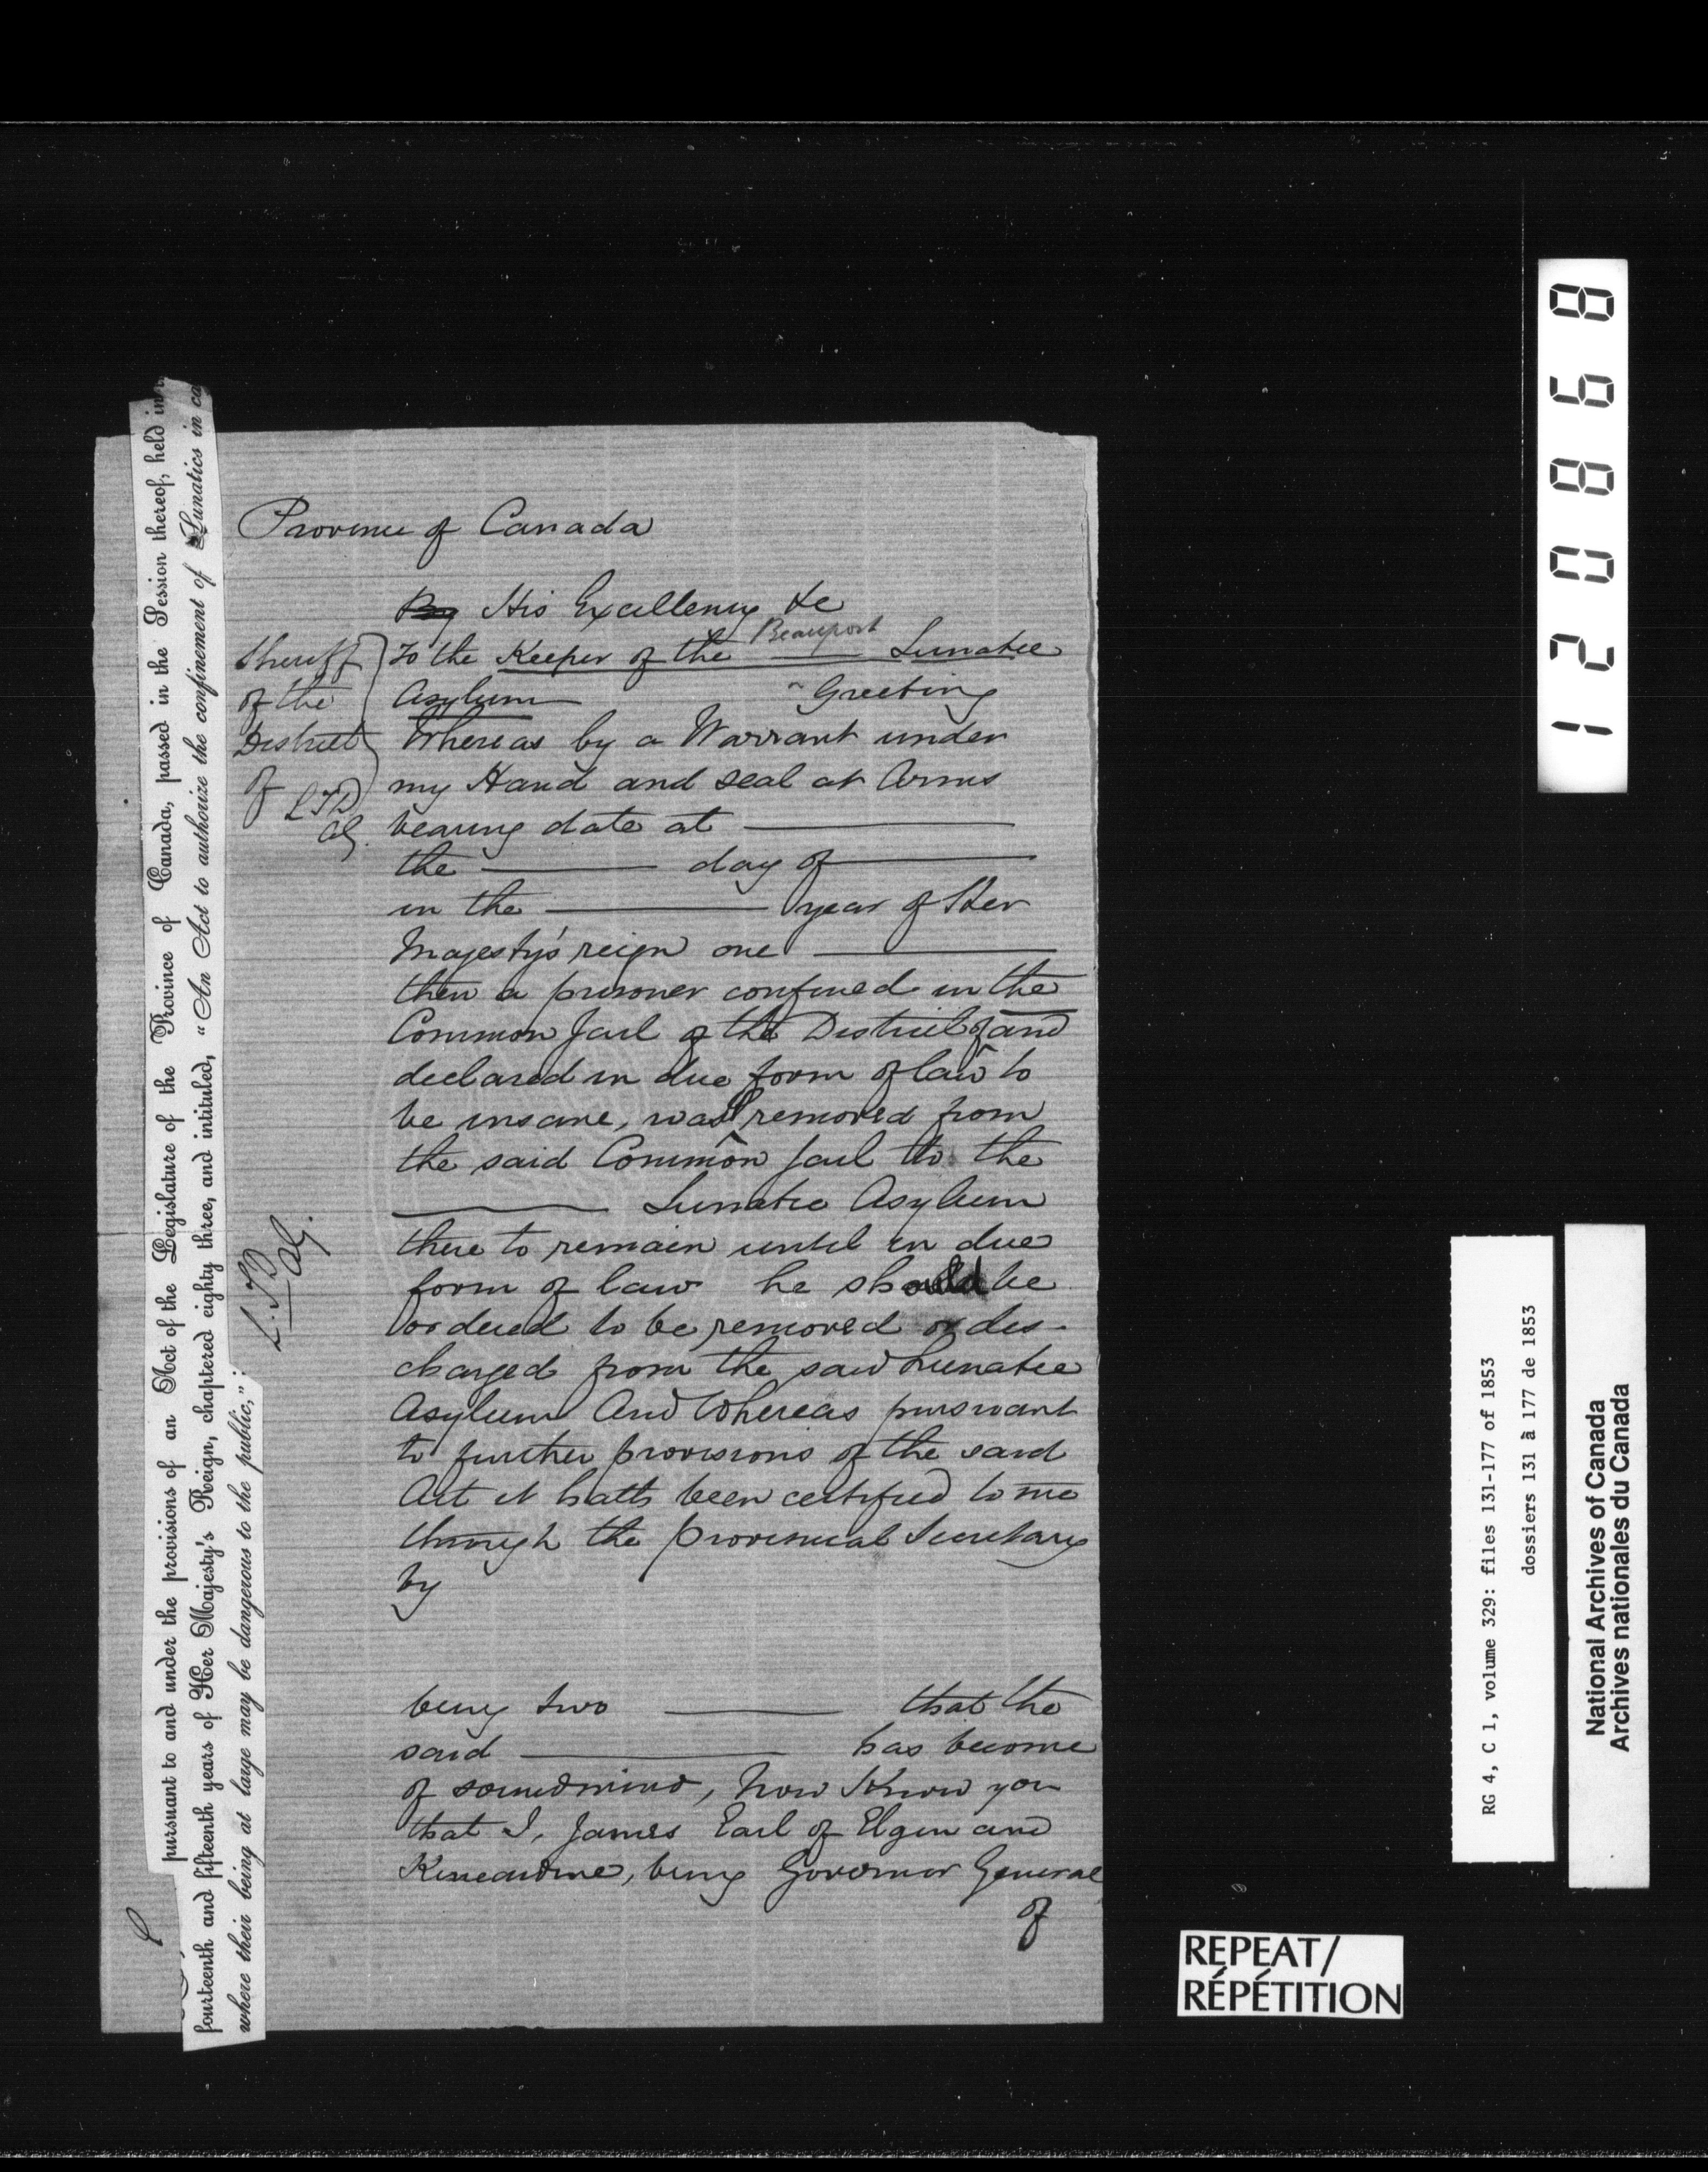 Province of Canada
By His Excellency &c
Beauport
To the Keeper of the Lunatic
Asylum Greeting
Sheriff
of the
District
of
LTD
AG.
Whereas by a Warrant under
my Hand and seal at Arms
bearing date at
the day of
in the year of Her
Majesty's reign one
then a prisoner confined in the
Common Jail of the District of and
declared in due form of law to
be insane, was removed from
the said Common Jail to the
Lunatic Asylum
there to remain until in due
form of law he should be
ordered to be removed or dis-
charged from the said Lunatic
Asylum And Whereas pursuant
to further provisions of the said
Act it hath been certified to me
through the Provincial Secretary
by
being two that the
said has become
of sound mind, Now Know you
that I, James Earl of Elgin and
Kincardine, being Governor General
of
pursuant to and under the provisions of an Act of the Legislature of the Province of Canada, passed in the Session thereof, held in
fourteenth and fifteenth years of Her Majesty's Reign, chaptered eighty three, and intituled, "An Act to authorize the confinement of Lunatics in ca
where their being at large may be dangerous to the public,";
L.TD
AG.
120868
RG 4, C 1, volume 329: files 131-177 of 1853
dossiers 131 à 177 de 1853
National Archives of Canada
Archives nationales du Canada
REPEAT/
RÉPÉTITION